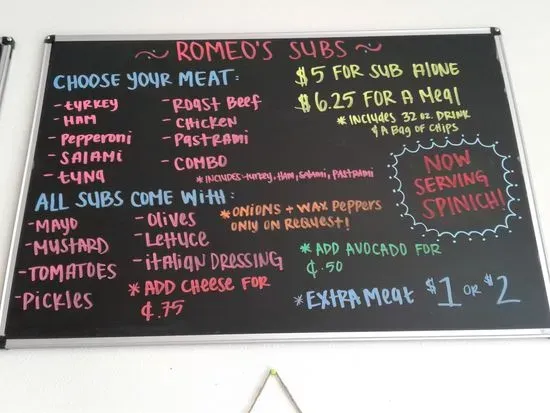 ~ ROMEO'S SUBS ~
CHOOSE YOUR MEAT:
- turkey
- HAM
- Pepperoni
- SALAMI
- tuna
- ROAST BeeF
- CHICKEN
- PASTRAMI
- COMBO
*INCLUDES-turkey, HAM, SALAMI, PASTRAMI
$5 FOR SUB AlONE
$6.25 FOR A MeAl
*INCLUDES 32 oz. DRINK
& A BAG OF CHIPS
NOW
SERVING
SPINICH!
ALL SUBS COME WITH:
-MAYO
-MUSTARD
-TOMATOES
-PICKLES
- Olives
- Lettuce
- itAliAN DRESSING
*ONIONS + WAX PEPPERS
ONLY ON REQUEST!
* ADD CHEESE FOR
¢.75
* ADD AVOCADO FOR
¢.50
*EXTRA MeAt $1 OR $2